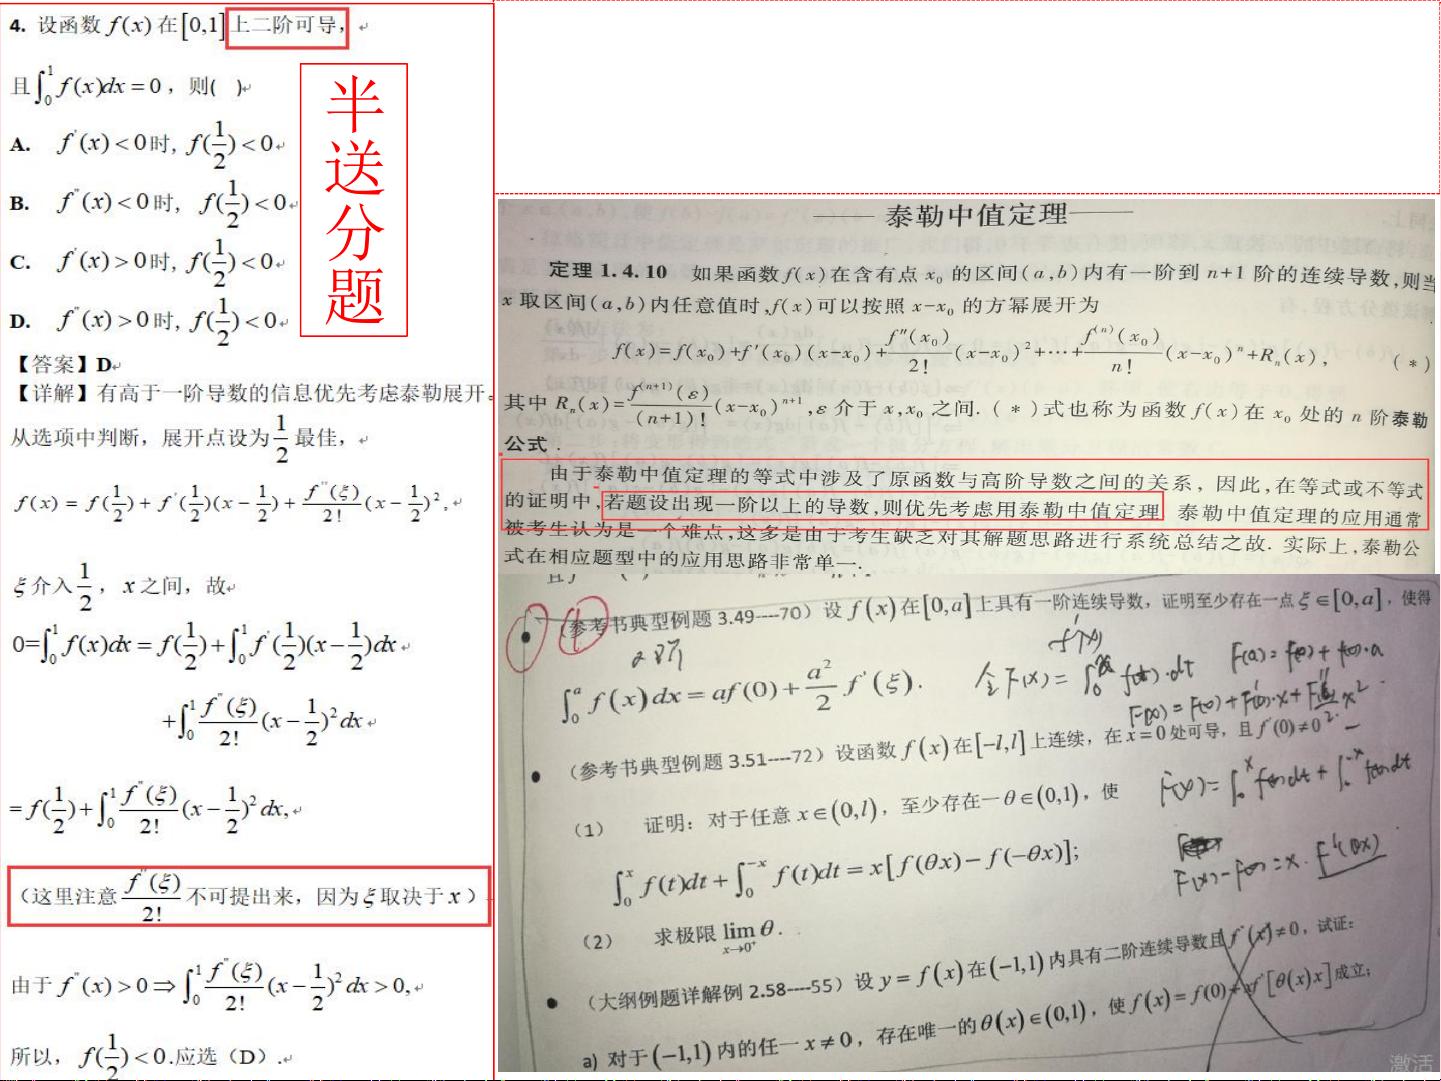 4. 设函数 f(x) 在 [0,1] 上二阶可导，
且 ∫₀¹ f(x)dx = 0，则( )
A. f'(x) < 0 时, f(1/2) < 0
B. f''(x) < 0 时, f(1/2) < 0
C. f'(x) > 0 时, f(1/2) < 0
D. f''(x) > 0 时, f(1/2) < 0
半
送
分
题
【答案】D
【详解】有高于一阶导数的信息优先考虑泰勒展开。
从选项中判断，展开点设为 1/2 最佳，
f(x) = f(1/2) + f'(1/2)(x − 1/2) + f''(ξ)/2! (x − 1/2)²,
ξ 介入 1/2，x 之间，故
0=∫₀¹ f(x)dx = f(1/2) + ∫₀¹ f'(1/2)(x − 1/2)dx
+∫₀¹ f''(ξ)/2! (x − 1/2)² dx
= f(1/2) + ∫₀¹ f''(ξ)/2! (x − 1/2)² dx,
（这里注意 f''(ξ)/2! 不可提出来，因为 ξ 取决于 x）
由于 f''(x) > 0 ⇒ ∫₀¹ f''(ξ)/2! (x − 1/2)² dx > 0,
所以，f(1/2) < 0.应选（D）.
泰勒中值定理
定理 1.4.10 如果函数 f(x) 在含有点 x₀ 的区间(a,b)内有一阶到 n+1 阶的连续导数,则当
x 取区间(a,b)内任意值时,f(x)可以按照 x−x₀ 的方幂展开为
f(x)=f(x₀)+f'(x₀)(x−x₀)+f''(x₀)/2!(x−x₀)²+⋯+f⁽ⁿ⁾(x₀)/n!(x−x₀)ⁿ+Rₙ(x), (*)
其中 Rₙ(x)=f⁽ⁿ⁺¹⁾(ε)/(n+1)!(x−x₀)ⁿ⁺¹,ε 介于 x,x₀ 之间.(*)式也称为函数 f(x)在 x₀ 处的 n 阶泰勒
公式.
由于泰勒中值定理的等式中涉及了原函数与高阶导数之间的关系，因此,在等式或不等式
的证明中,若题设出现一阶以上的导数,则优先考虑用泰勒中值定理 泰勒中值定理的应用通常
被考生认为是一个难点,这多是由于考生缺乏对其解题思路进行系统总结之故.实际上,泰勒公
式在相应题型中的应用思路非常单一.
（参考书典型例题 3.49----70）设 f(x) 在 [0,a] 上具有一阶连续导数，证明至少存在一点 ξ∈[0,a]，使得
2阶
f'(x)
∫₀ᵃ f(x)dx = af(0) + a²/2 f'(ξ).
令 F(x) = ∫₀ˣ f(t)·dt
（参考书典型例题 3.51----72）设函数 f(x) 在 [−l,l] 上连续，在 x=0 处可导，且 f'(0)≠0
（1） 证明：对于任意 x∈(0,l)，至少存在一 θ∈(0,1)，使
F(x) = ∫₀ˣ f(t)dt + ∫₀⁻ˣ f(t)dt
∫₀ˣ f(t)dt + ∫₀⁻ˣ f(t)dt = x[f(θx) − f(−θx)];
F(x)−F(0)=x·F'(θx)
（2） 求极限 lim x→0⁺ θ.
（大纲例题详解例 2.58----55）设 y = f(x) 在 (−1,1) 内具有二阶连续导数且 f''(x)≠0，试证：
a) 对于 (−1,1) 内的任一 x≠0，存在唯一的 θ(x)∈(0,1)，使 f(x) = f(0)+xf'[θ(x)x] 成立；
激活